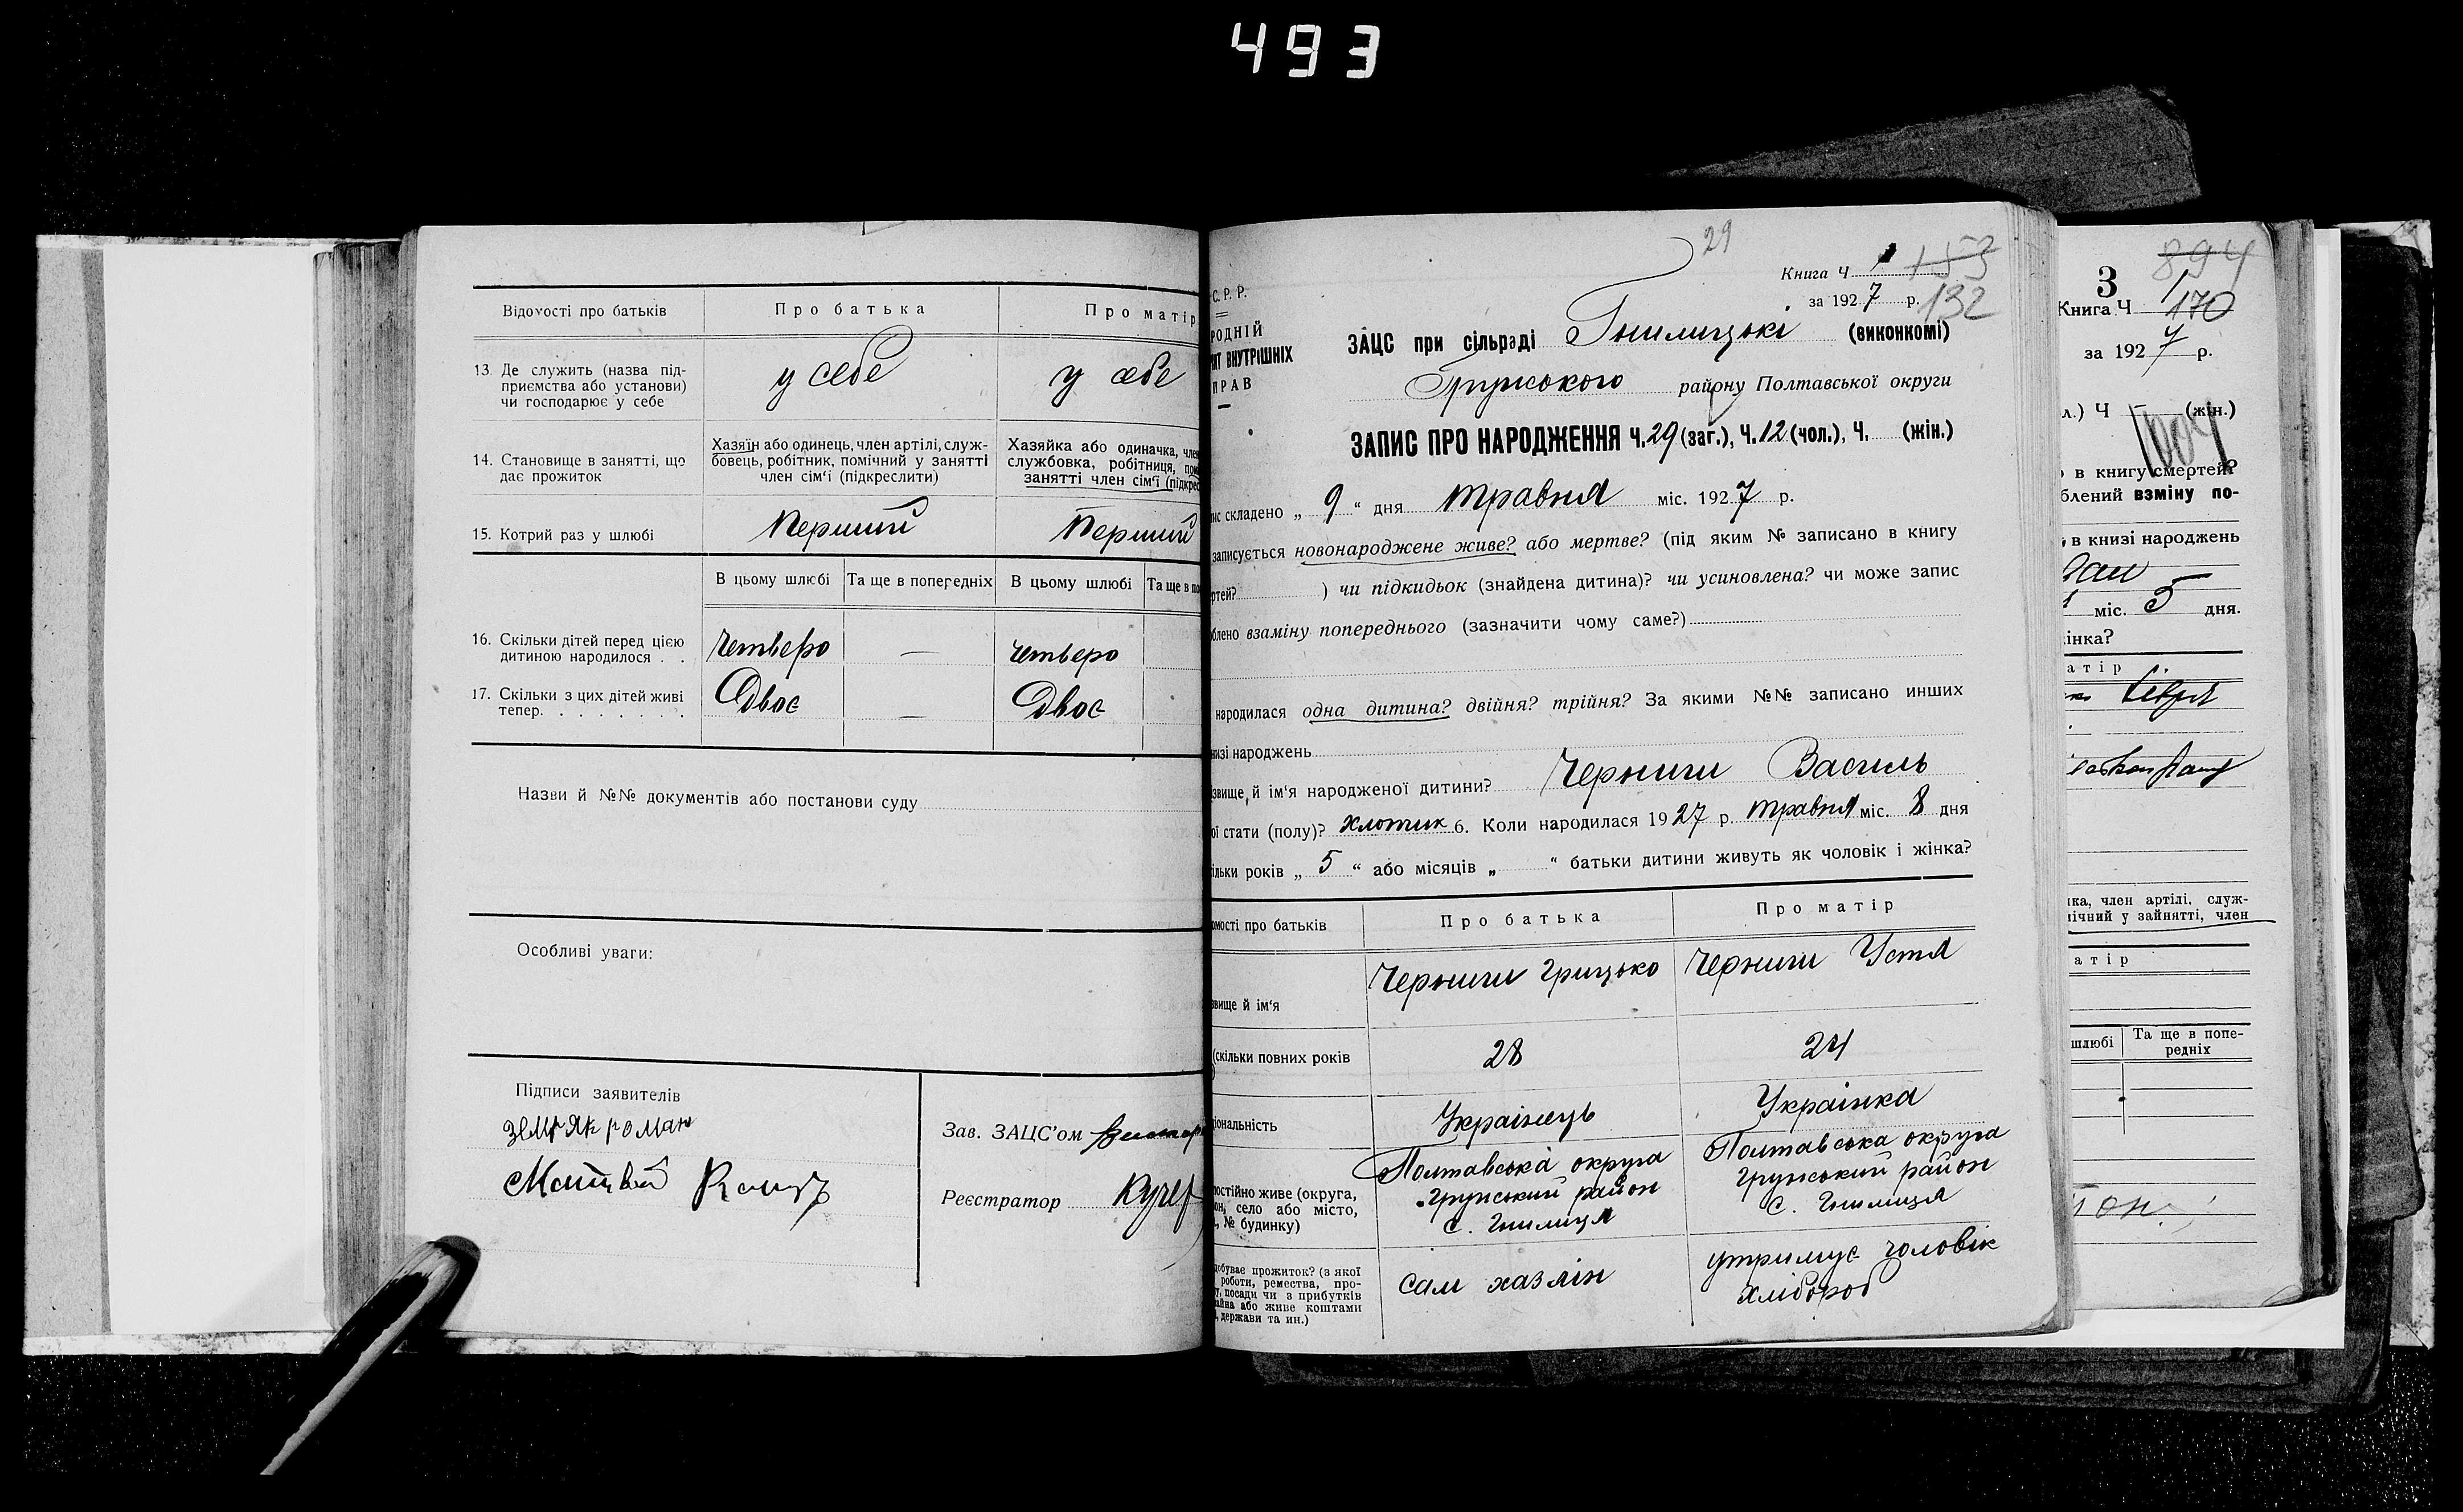 493
Відомості про батьків Про батька Про матір
13. Де служить (назва під-
приємства або установи)
чи господарює у себе
у себе у себе
14. Становище в занятті, що
дає прожиток
Хазяїн або одинець, член артілі, служ-
бовець, робітник, помічний у занятті
член сім'ї (підкреслити)
Хазяйка або одиначка, член
службовка, робітниця, пом
занятті член сім'ї (підкрес
15. Котрий раз у шлюбі Перший Перший
В цьому шлюбі Та ще в попередніх В цьому шлюбі Та ще в по
16. Скільки дітей перед цією
дитиною народилося . .
Четверо — четверо
17. Скільки з цих дітей живі
тепер. . . . . . . .
Двоє — Двоє
Назви й №№ документів або постанови суду
Особливі уваги:
Підписи заявителів
земляк роман
Матвій
Зав. ЗАЦС'ом
Реєстратор Кучер
29
Книга Ч. 1 153
за 1927 р. 132
С. Р. Р.
РОДНІЙ
ЯТ ВНУТРІШНІХ
ПРАВ
ЗАЦС при сільраді Гнилицькі (виконкомі)
Грунського району Полтавської округи
ЗАПИС ПРО НАРОДЖЕННЯ Ч. 29 (заг.), Ч. 12 (чол.), Ч. (жін.)
ис складено „ 9 “ дня травня міс. 1927 р.
записується новонароджене живе? або мертве? (під яким № записано в книгу
ртей? ) чи підкидьок (знайдена дитина)? чи усиновлена? чи може запис
блено взаміну попереднього (зазначити чому саме?)
народилася одна дитина? двійня? трійня? За якими №№ записано инших
низі народжень
звище й ім'я народженої дитини? Черниш Василь
ої стати (полу)? хлопчик 6. Коли народилася 1927 р. травня міс. 8 дня
ільки років „ 5 “ або місяців „ “ батьки дитини живуть як чоловік і жінка?
омості про батьків Про батька Про матір
звище й ім'я Черниш Грицько Черниш Устя
(скільки повних років
)
28 24
іональність Українець Українка
постійно живе (округа,
он, село або місто,
, № будинку)
Полтавська округа
Грунський район
с. Гнилиця
Полтавська округа
Грунський район
с. Гнилиця
добуває прожиток? (з якої
роботи, ремества, про-
у, посади чи з прибутків
айна або живе коштами
, держави та ин.)
сам хазяїн
утримує чоловік
хлібороб
894
3
Книга Ч 1
170
за 1927 р.
л.) Ч — (жін.)
1004
о в книгу смертей?
блений взміну по-
, в книзі народжень
міс. 5 дня.
інка?
атір
ка, член артілі, служ-
мічний у зайнятті, член
атір
шлюбі Та ще в попе-
редніх